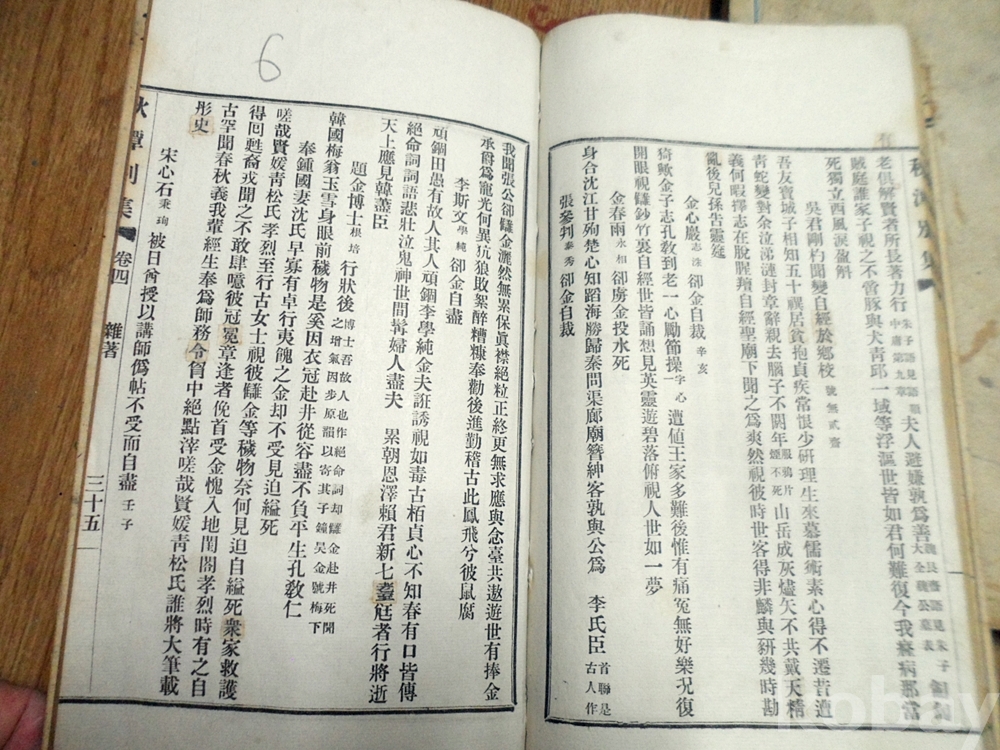 老俱解賢者所長著力行朱子語見語類中庸第九章夫人避嫌孰爲善魏良齋語見朱子大全魏公墓表錮錮
賊庭誰家子視之不啻豚與犬靑邱一域等浮漚世皆如君何難復今我痳病那當
死獨立西風淚盈斛
吳君剛杓聞變自經於鄕校號無貳齋
吾友寶城子相知五十禩居貧抱貞疾常恨少硏理生來慕儒術素心得不遷昔遭
靑蛇變對余泣涕漣封章辭親去腦子不閞年服鴉片煙不死山岳成灰燼矢不共戴天精
義何暇擇志在脫腥羶自經聖廟下聞之爲爽然視彼時世客得非麟與豣幾時勘
亂後兒孫告靈筵
金心巖志洙卻金自裁辛亥
猗歟金子志孔敎到老一心勵節操一字心遭値王家多難後惟有痛冤無好樂况復
開眼視讎鈔竹裏自經世皆誦想見英靈遊碧落俯視人世如一夢
金春雨永相卻虜金投水死
身合沈江甘殉楚心知蹈海勝歸秦問渠廊廟簪紳客孰與公爲李氏臣首聯是古人作
張參判泰秀卻金自裁
我聞張公卻讎金灑然無累保眞襟絕粒正終更無求應與念臺共遨遊世有捧金
承爵爲寵光何異抗狼敗絮醉糟糠奉勸後進勤稽古此鳳飛兮彼鼠腐
李斯文學純卻金自盡
頑錮田愚有故人其人頑錮李學純金夫誑誘視如毒古栢貞心不知春有口皆傳
絕命詞詞語悲壯泣鬼神世間髥婦人盡夫累朝恩澤賴君新七耋尫者行將逝
天上應見韓藎臣
題金博士根培行狀後博士吾故人也作絕命詞却讎金赴井死聞之增氣因步原韻以寄其子鐘昊金號梅下
韓國梅翁玉雪身眼前穢物是奚因衣冠赴井從容盡不負平生孔敎仁
奉鍾國妻沈氏早寡有卓行夷餽之金却不受見迫縊死
嗟哉賢媛靑松氏孝烈至行古女士視彼讎金等穢物奈何見迫自縊死衆家救護
得回甦裔戎聞之不敢肆噫彼冠冕章逢者俛首受金愧入地閨閤孝烈時有之自
古罕聞春秋義我輩經生奉爲師務令箇中絕點滓嗟哉賢媛靑松氏誰將大筆載
彤史
宋心石秉珣被日酋授以講師僞帖不受而自盡壬子
秋潭別集
卷四
雜著
三十五
6